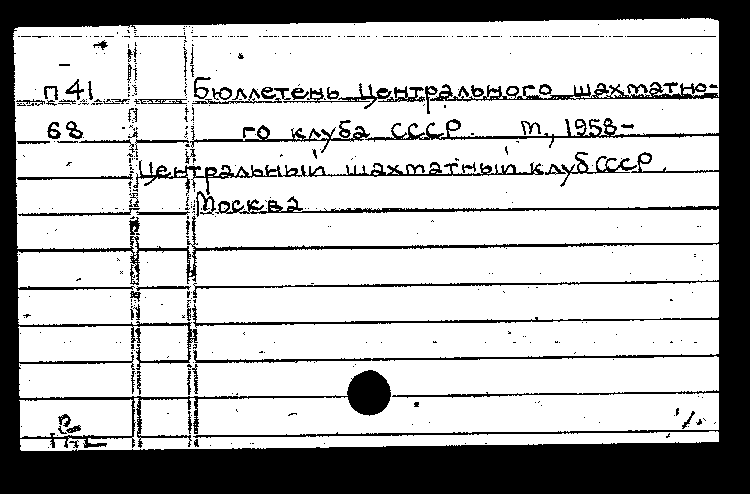 П41 Бюллетень Центрального шахматно-
68 го клуба СССР. М., 1958-
Центральный шахматный клуб СССР.
Москва